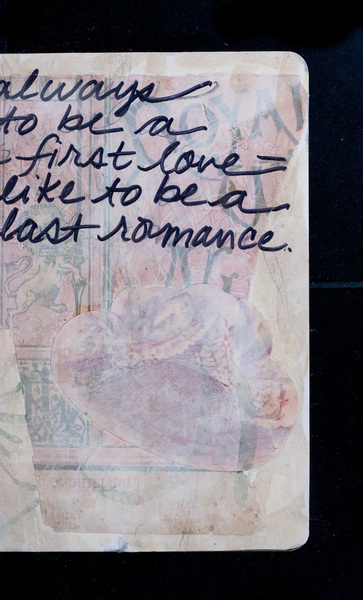 always
to be a
first love =
like to be a
last romance.